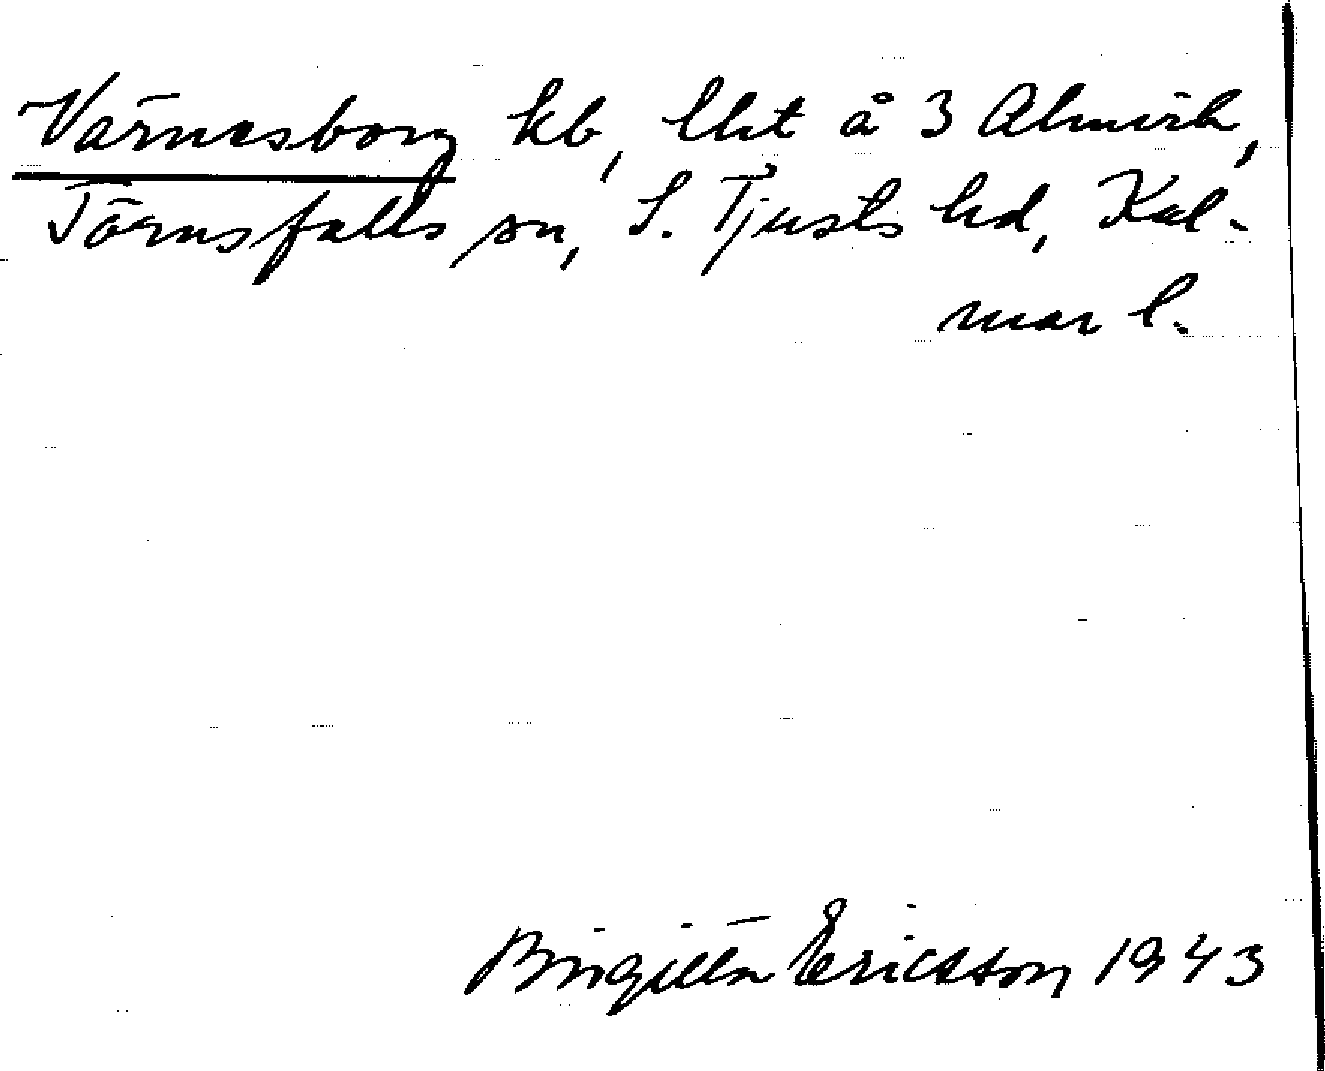 Värnesborg kb, lht å 3 Almvik,
Törnsfalls sn, S. Tjusts hd, Kal-
mar l.
Birgitta Ericsson 1943